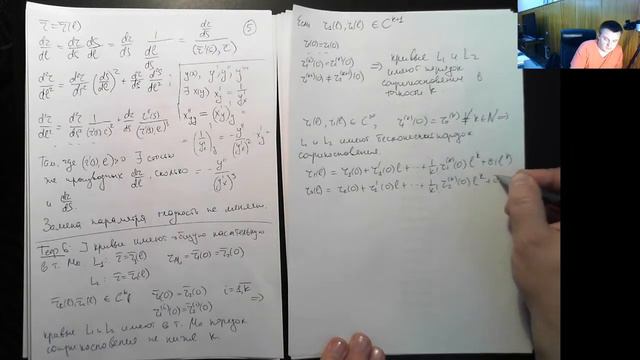 r̄ = r̄(l)
dr/dl = dr/ds ds/dl = dr/ds 1/(dl/ds) = (dr/ds)/(r'(s), τ)
d²r/dl² = d²r/ds² (ds/dl)² + dr/ds d²s/dl² ;
y(x), y', y'', y'''
∃ x(y) x'y = 1/y'x
x''yy = (x'y)'y =
= (1/y'x)'y = - y''/(y'x)² x'y =
= - y''/(y'x)³
Там, где (r'(s), e) > 0 ∃ столько
же производных dr/dl, сколько
и dr/ds.
Замена параметра гладкость не меняет.
Теор 6: ∃ кривые имеют общую касательную
в т. M₀ L₁: r̄ = r̄₁(l) r_M₀ = r̄₁(0) = r̄₂(0)
L₂: r̄ = r̄₂(l)
r̄₁(l), r̄₂(l) ∈ Cᵏ, r̄₁(0) = r̄₂(0) i = 1,k
r₁⁽ⁱ⁾(0) = r₂⁽ⁱ⁾(0) ⟹
кривые L₁ и L₂ имеют в т. M₀ порядок
соприкосновения не ниже k.
5
Если r₁(l), r₂(l) ∈ Cᵏ⁺¹
r₁(0) = r₂(0)
...
r₁⁽ᵏ⁾(0) = r₂⁽ᵏ⁾(0)
r₁⁽ᵏ⁺¹⁾(0) ≠ r₂⁽ᵏ⁺¹⁾(0)
⟹ кривые L₁ и L₂
имеют порядок
соприкосновения в
точности k
r₁(l), r₂(l) ∈ C^∞, r₁⁽ᵏ⁾(0) = r₂⁽ᵏ⁾(0) ∀ k ∈ N ⟹
L₁ и L₂ имеют бесконечный порядок
соприкосновения.
r₁(l) = r₁(0) + r₁'(0) l + ... + 1/k! r₁⁽ᵏ⁾(0) lᵏ + o₁(lᵏ)
r₂(l) = r₂(0) + r₂'(0) l + ... + 1/k! r₂⁽ᵏ⁾(0) lᵏ +